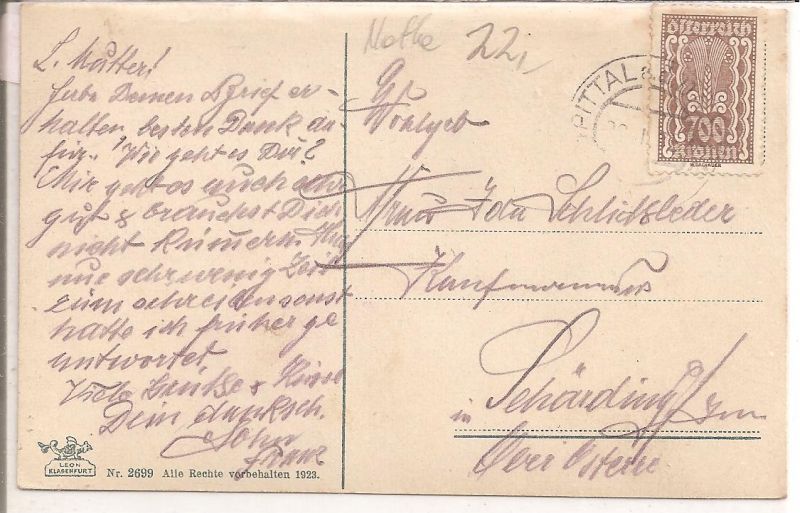 L. Mutter!
Habe Deinen Brief er-
halten, besten Dank da-
für. Wie geht es Dir?
Mir geht es auch sehr
gut & brauchst Dich
nicht kümmern. Hab
nur sehr wenig Zeit
zum schreiben sonst
hätte ich früher ge
antwortet.
Viele Grüße & Küsse
Dein dankb.
Sohn
Franz
LEON
KLAGENFURT
Nr. 2699 Alle Rechte vorbehalten 1923.
22,
SPITTAL a.
Österreich
700
Kronen
Wohlgeb
Frau Ida Schlickleder
Kaufmanns
in Schärding a/Inn
Ober Österr